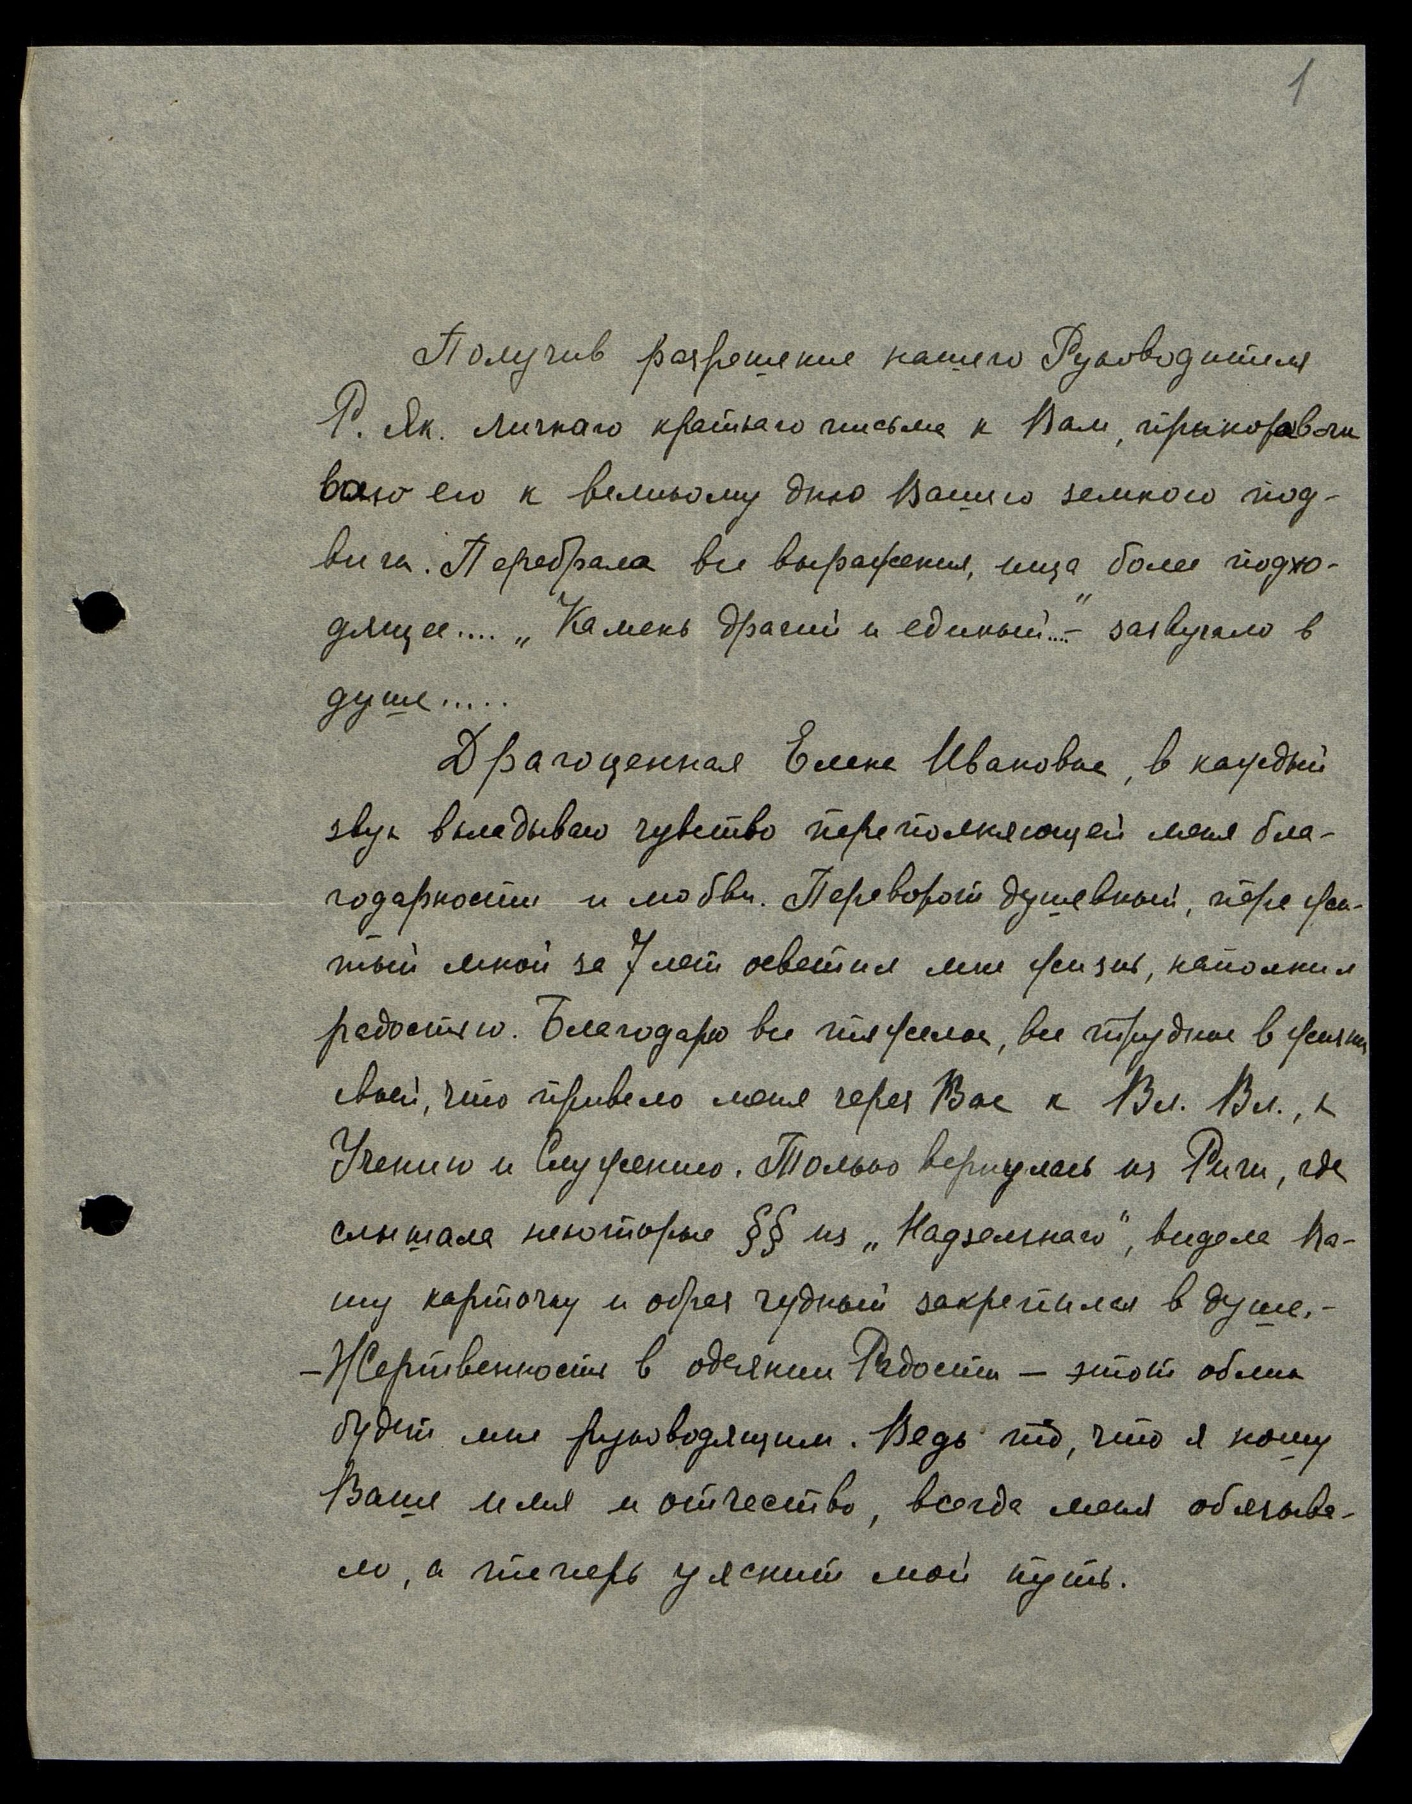 1
Получив разрешение нашего Руководителя
Р. Як. личнаго краткаго письма к Вам, приноравли
ваю его к великому дню Вашего земного под-
вига. Перебрала все выражения, ища более подхо-
дящее.... „Камень драгий и единый...“ - зазвучало в
душе.....
Драгоценная Елена Ивановна, в каждый
звук вкладываю чувство переполняющей меня бла-
годарности и любви. Переворот душевный, пережи-
тый мной за 7 лет осветил мне жизнь, наполнил
радостью. Благодарю все тяжелое, все трудное в жизни
своей, что привело меня через Вас к Вл. Вл., к
Учению и Служению. Только вернулась из Риги, где
слышала некоторые §§ из „Надземнаго“, видела Ва-
шу карточку и образ чудный закрепился в душе.-
- Жертвенность в одеянии Радости - этот облик
будет мне руководящим. Ведь то, что я ношу
Ваше имя и отчество, всегда меня обязыва-
ло, а теперь уяснит мой путь.